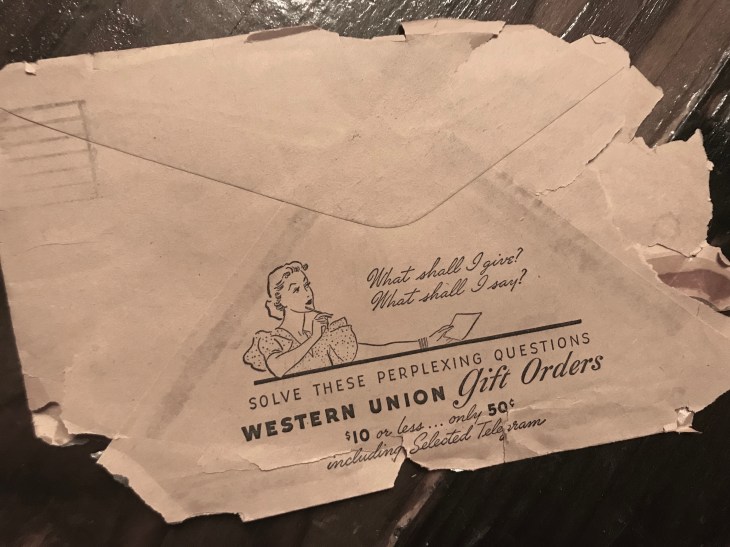 What shall I give?
What shall I say?
SOLVE THESE PERPLEXING QUESTIONS
WESTERN UNION Gift Orders
$10 or less... only 50¢
including Selected Telegram